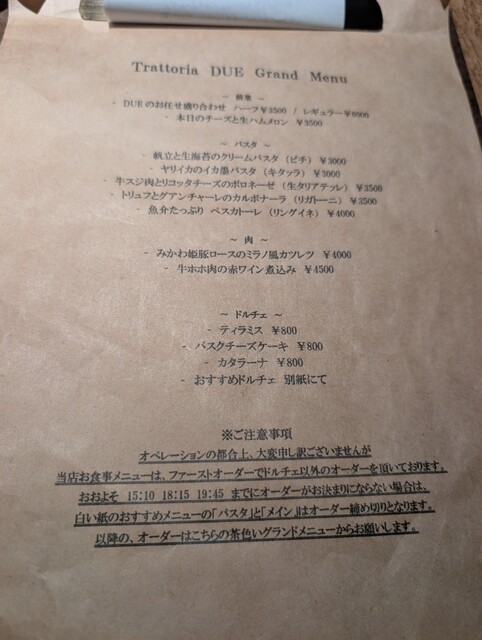 Trattoria DUE Grand Menu
～ 前菜 ～
- DUEのお任せ盛り合わせ ハーフ￥3500 / レギュラー￥6000
- 本日のチーズと生ハムメロン ￥3500
～ パスタ ～
- 帆立と生海苔のクリームパスタ (ピチ) ￥3000
- ヤリイカのイカ墨パスタ (キタッラ) ￥3000
- 牛スジ肉とリコッタチーズのボロネーゼ (生タリアテッレ) ￥3500
- トリュフとグアンチャーレのカルボナーラ (リガトーニ) ￥3500
- 魚介たっぷり ペスカトーレ (リングイネ) ￥4000
～ 肉 ～
- みかわ姫豚ロースのミラノ風カツレツ ￥4000
- 牛ホホ肉の赤ワイン煮込み ￥4500
～ ドルチェ ～
- ティラミス ￥800
- バスクチーズケーキ ￥800
- カタラーナ ￥800
- おすすめドルチェ 別紙にて
※ご注意事項
オペレーションの都合上、大変申し訳ございませんが
当店お食事メニューは、ファーストオーダーでドルチェ以外のオーダーを頂いております。
おおよそ 15:10 18:15 19:45 までにオーダーがお決まりにならない場合は、
白い紙のおすすめメニューの「パスタ」と「メイン」はオーダー締め切りとなります。
以降の、オーダーはこちらの茶色いグランドメニューからお願いします。